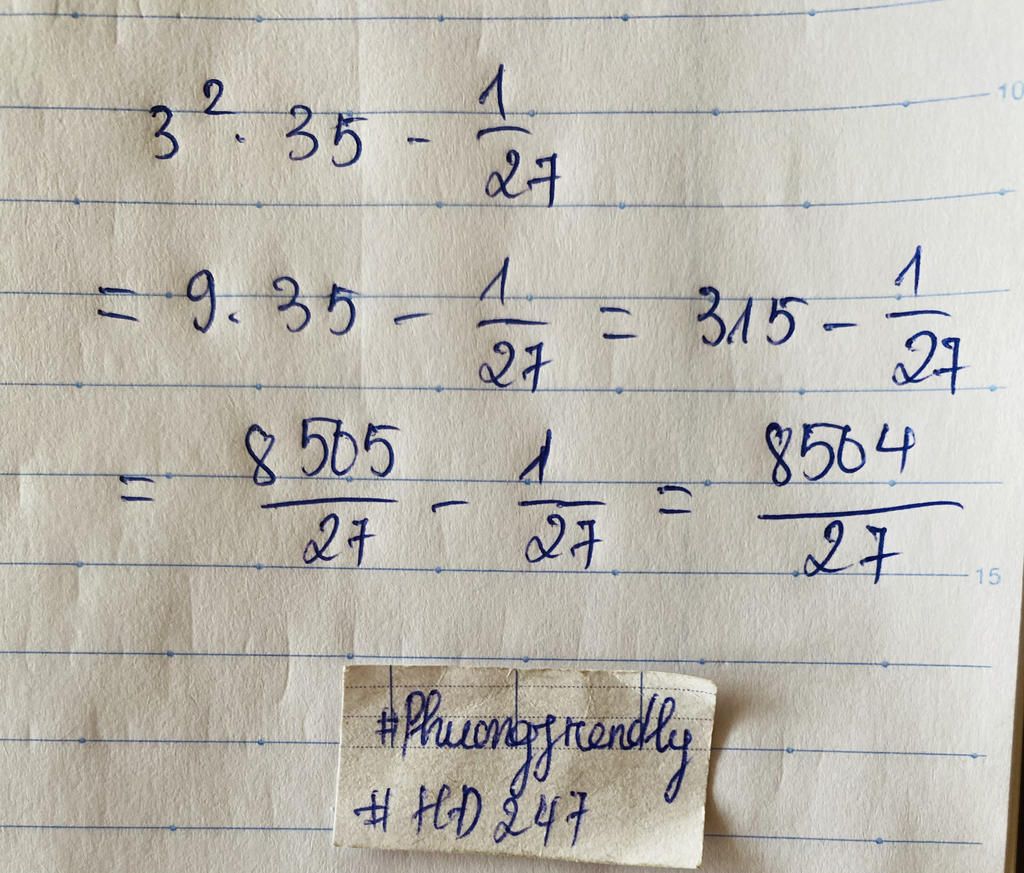 3² · 35 - 1/27
= 9 · 35 - 1/27 = 315 - 1/27
= 8505/27 - 1/27 = 8504/27
#Phuongfrendly
#HD247
10
15